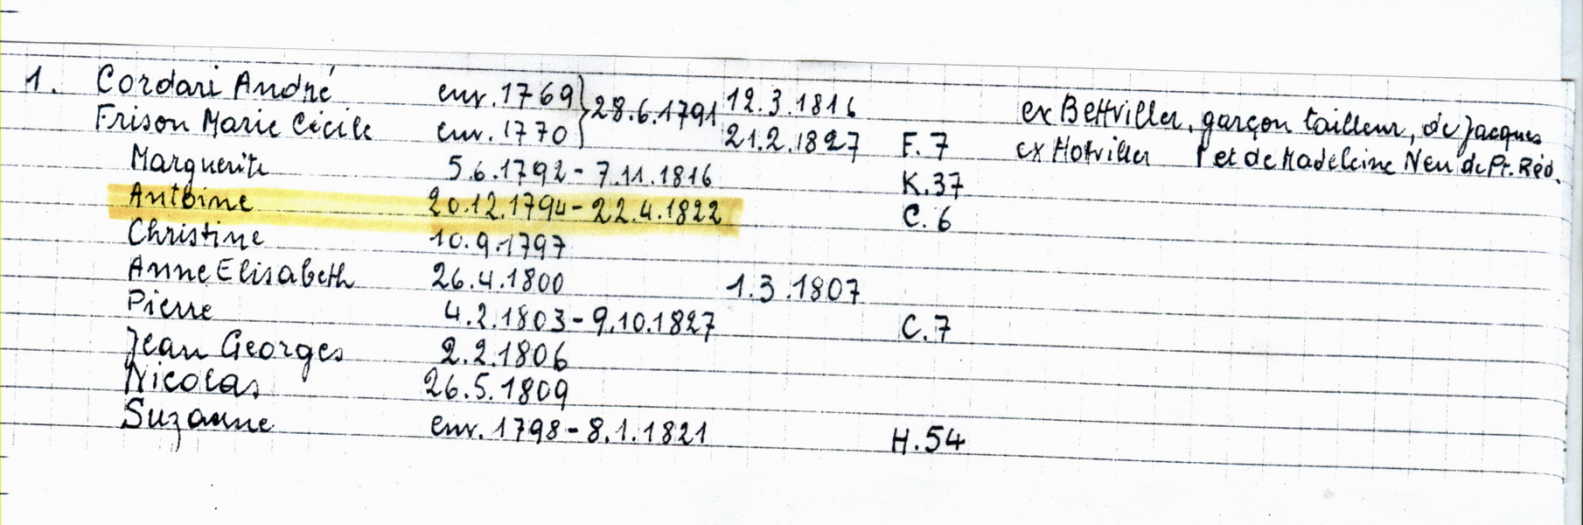 1. Cordari André env. 1769 } 28.6.1791 12.3.1816 ex Bettviller, garçon tailleur, de Jacques
Frison Marie Cécile env. 1770 } 21.2.1827 F.7 ex Hotviller et de Madeleine Neu de Pt. Réd.
Marguerite 5.6.1792 - 7.11.1816 K.37
Antoine 20.12.1794 - 22.4.1822 C.6
Christine 10.9.1797
Anne Elisabeth 26.4.1800 1.3.1807
Pierre 4.2.1803 - 9.10.1827 C.7
Jean Georges 2.2.1806
Nicolas 26.5.1809
Suzanne env. 1798 - 8.1.1821 H.54